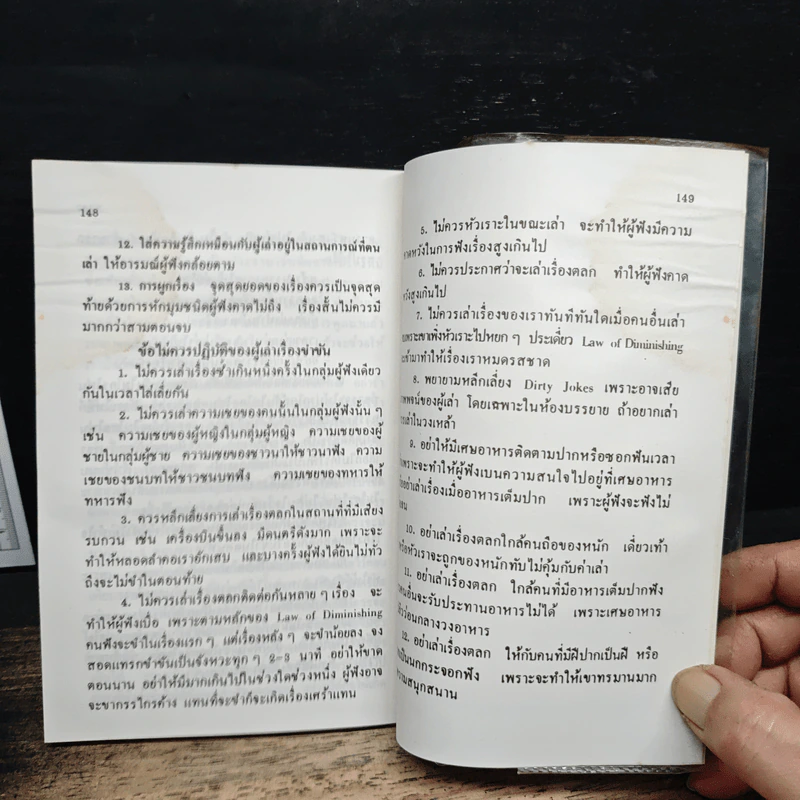 148
12. ใส่ความรู้สึกเหมือนกับผู้เล่าอยู่ในสถานการณ์ที่ตน
เล่า ให้อารมณ์ผู้ฟังคล้อยตาม
13. การผูกเรื่อง จุดสุดยอดของเรื่องควรเป็นจุดสุด
ท้ายด้วยการหักมุมชนิดผู้ฟังคาดไม่ถึง เรื่องสั้นไม่ควรมี
มากกว่าสามตอนจบ
ข้อไม่ควรปฏิบัติของผู้เล่าเรื่องขำขัน
1. ไม่ควรเล่าเรื่องซ้ำเกินหนึ่งครั้งในกลุ่มผู้ฟังเดียว
กันในเวลาไล่เลี่ยกัน
2. ไม่ควรเล่าความเชยของคนนั้นในกลุ่มผู้ฟังนั้น ๆ
เช่น ความเชยของผู้หญิงในกลุ่มผู้หญิง ความเชยของผู้
ชายในกลุ่มผู้ชาย ความเชยของชาวนาให้ชาวนาฟัง ความ
เชยของชนบทให้ชาวชนบทฟัง ความเชยของทหารให้
ทหารฟัง
3. ควรหลีกเลี่ยงการเล่าเรื่องตลกในสถานที่ที่มีเสียง
รบกวน เช่น เครื่องบินขึ้นลง มีดนตรีดังมาก เพราะจะ
ทำให้หลอดลำคอเราอักเสบ และบางครั้งผู้ฟังได้ยินไม่ทั่ว
ถึงจะไม่ขำในตอนท้าย
4. ไม่ควรเล่าเรื่องตลกติดต่อกันหลาย ๆ เรื่อง จะ
ทำให้ผู้ฟังเบื่อ เพราะตามหลักของ Law of Diminishing
คนฟังจะขำในเรื่องแรก ๆ แต่เรื่องหลัง ๆ จะขำน้อยลง จง
สอดแทรกขำขันเป็นจังหวะทุก ๆ 2-3 นาที อย่าให้ขาด
ตอนนาน อย่าให้มีมากเกินไปในช่วงใดช่วงหนึ่ง ผู้ฟังอาจ
จะขากรรไกรค้าง แทนที่จะขำก็จะเกิดเรื่องเศร้าแทน
149
5. ไม่ควรหัวเราะในขณะเล่า จะทำให้ผู้ฟังมีความ
คาดหวังในการฟังเรื่องสูงเกินไป
6. ไม่ควรประกาศว่าจะเล่าเรื่องตลก ทำให้ผู้ฟังคาด
หวังสูงเกินไป
7. ไม่ควรเล่าเรื่องของเราทันทีทันใดเมื่อคนอื่นเล่า
เพราะเขาเพิ่งหัวเราะไปหยก ๆ ประเดี๋ยว Law of Diminishing
จะเข้ามาทำให้เรื่องเราหมดรสชาด
8. พยายามหลีกเลี่ยง Dirty Jokes เพราะอาจเสีย
ภาพพจน์ของผู้เล่า โดยเฉพาะในห้องบรรยาย ถ้าอยากเล่า
เล่าในวงเหล้า
9. อย่าให้มีเศษอาหารติดตามปากหรือซอกฟันเวลา
เพราะจะทำให้ผู้ฟังเบนความสนใจไปอยู่ที่เศษอาหาร
อย่าเล่าเรื่องเมื่ออาหารเต็มปาก เพราะผู้ฟังจะฟังไม่
10. อย่าเล่าเรื่องตลกใกล้คนถือของหนัก เดี๋ยวเท้า
หรือหัวเราจะถูกของหนักทับไม่คุ้มกับค่าเล่า
11. อย่าเล่าเรื่องตลก ใกล้คนที่มีอาหารเต็มปากฟัง
คนอื่นจะรับประทานอาหารไม่ได้ เพราะเศษอาหาร
ว่อนกลางวงอาหาร
12. อย่าเล่าเรื่องตลก ให้กับคนที่มีฝีปากเป็นฝี หรือ
เป็นนกกระจอกฟัง เพราะจะทำให้เขาทรมานมาก
ความสนุกสนาน